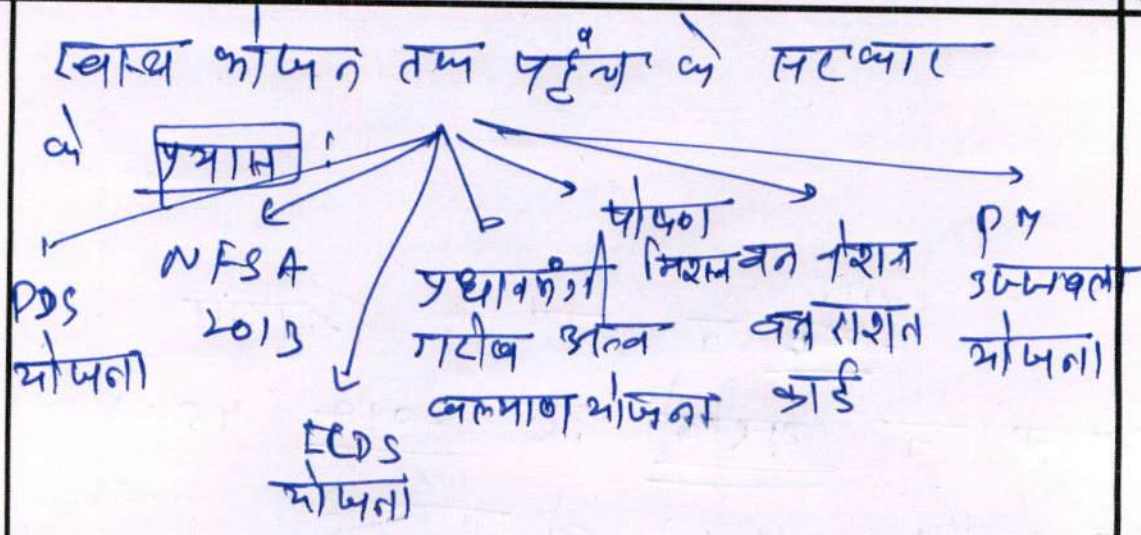 स्वास्थ्य भोजन तक पहुँच के सरकार
के प्रयास :
PDS
योजना
NFSA
2013
ICDS
योजना
प्रधानमंत्री
गरीब अन्न
कल्याण योजना
पोषण
मिशन
वन नेशन
वन राशन
कार्ड
PM
उज्जवला
योजना